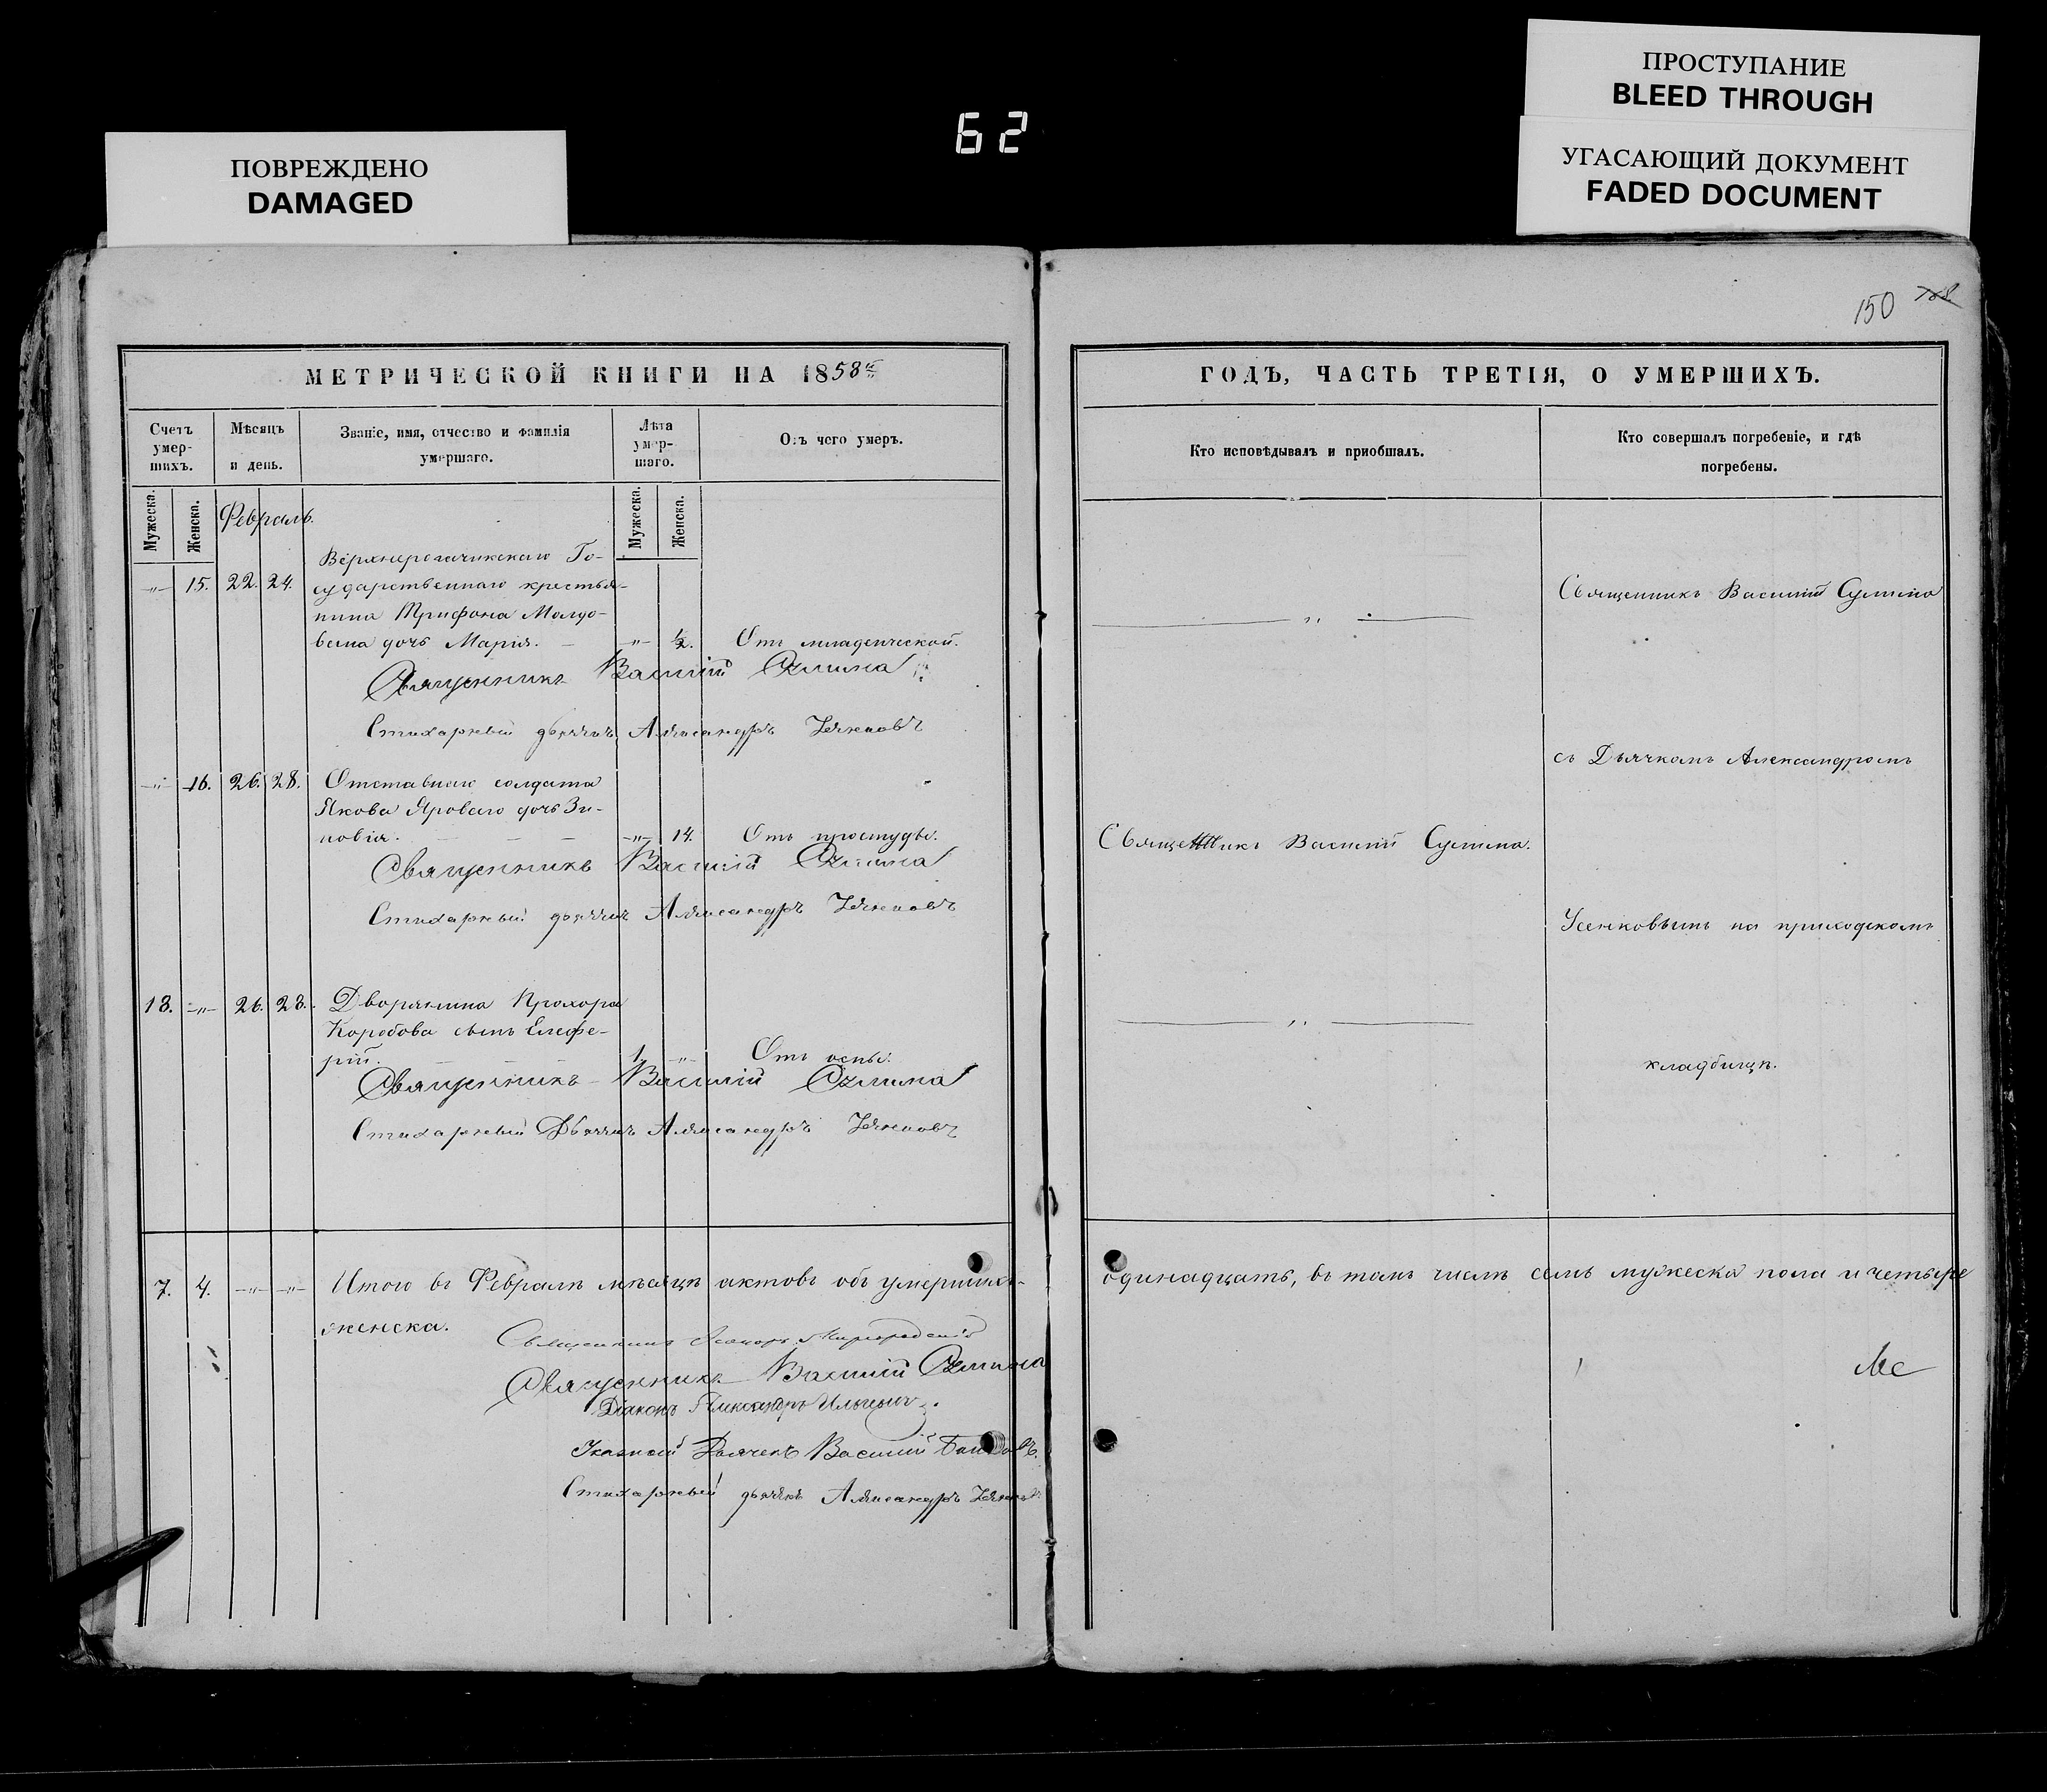 ПРОСТУПАНИЕ
BLEED THROUGH
УГАСАЮЩИЙ ДОКУМЕНТ
FADED DOCUMENT
62
ПОВРЕЖДЕНО
DAMAGED
150 148
МЕТРИЧЕСКОЙ КНИГИ НА 1858й
Счетъ умер-шихъ.
Мѣсяцъ и день.
Званіе, имя, отчество и фамилія умершаго.
Лѣта умер-шаго.
Отъ чего умеръ.
Мужеска. Женска. Мужеска. Женска.
Февраль.
Верхнерогачикскаго Го-
„ 15. 22. 24. сударственнаго крестья-
нина Трифона Молдо-
вана дочь Марія. „ ½. Отъ младенческой.
Священникъ Василій Сулима
Стихарный дьячекъ Александръ Усенковъ
„ 16. 26. 28. Отставнаго солдата
Якова Яроваго дочь Зи-
новія. „ 14. Отъ простуды.
Священникъ Василій Сулима
Стихарный дьячекъ Александръ Усенковъ
13. „ 26. 28. Дворянина Прохора
Коробова сынъ Елефе-
рій. 1. „ Отъ оспы.
Священникъ Василій Сулима
Стихарный Дьячекъ Александръ Усенковъ
7. 4. „ „ Итого въ Февралѣ мѣсяцѣ актовъ объ умершихъ
женска.
Священникъ Миргородскій
Священникъ Василій Сулима
Діаконъ Александръ
Указной Дьячекъ Василій
Стихарный дьячекъ Александръ Усенковъ
ГОДЪ, ЧАСТЬ ТРЕТІЯ, О УМЕРШИХЪ.
Кто исповѣдывалъ и пріобщалъ.
Кто совершалъ погребеніе, и гдѣ погребены.
„ Священникъ Василій Сулима
съ Дьячкомъ Александромъ
Священникъ Василій Сулима.
Усенковымъ на приходскомъ
„
кладбищѣ.
одинадцать, въ томъ числѣ семь мужеска пола и четыре
Ме